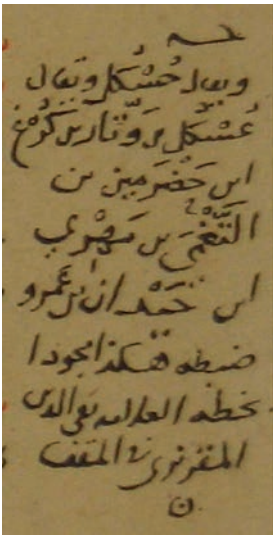 ويقال حُسْكُل ويقال
عُسْكُل بن وتّار بن كُرْع
ابن حَضْرَمين بن
النُّغْمَى بن مَهْري
ابن حَيْدان بن عَمرو
ضبطه هكذا مجودا
بخطه العلامه تقي الدين
المقريزي في المقفى
ن